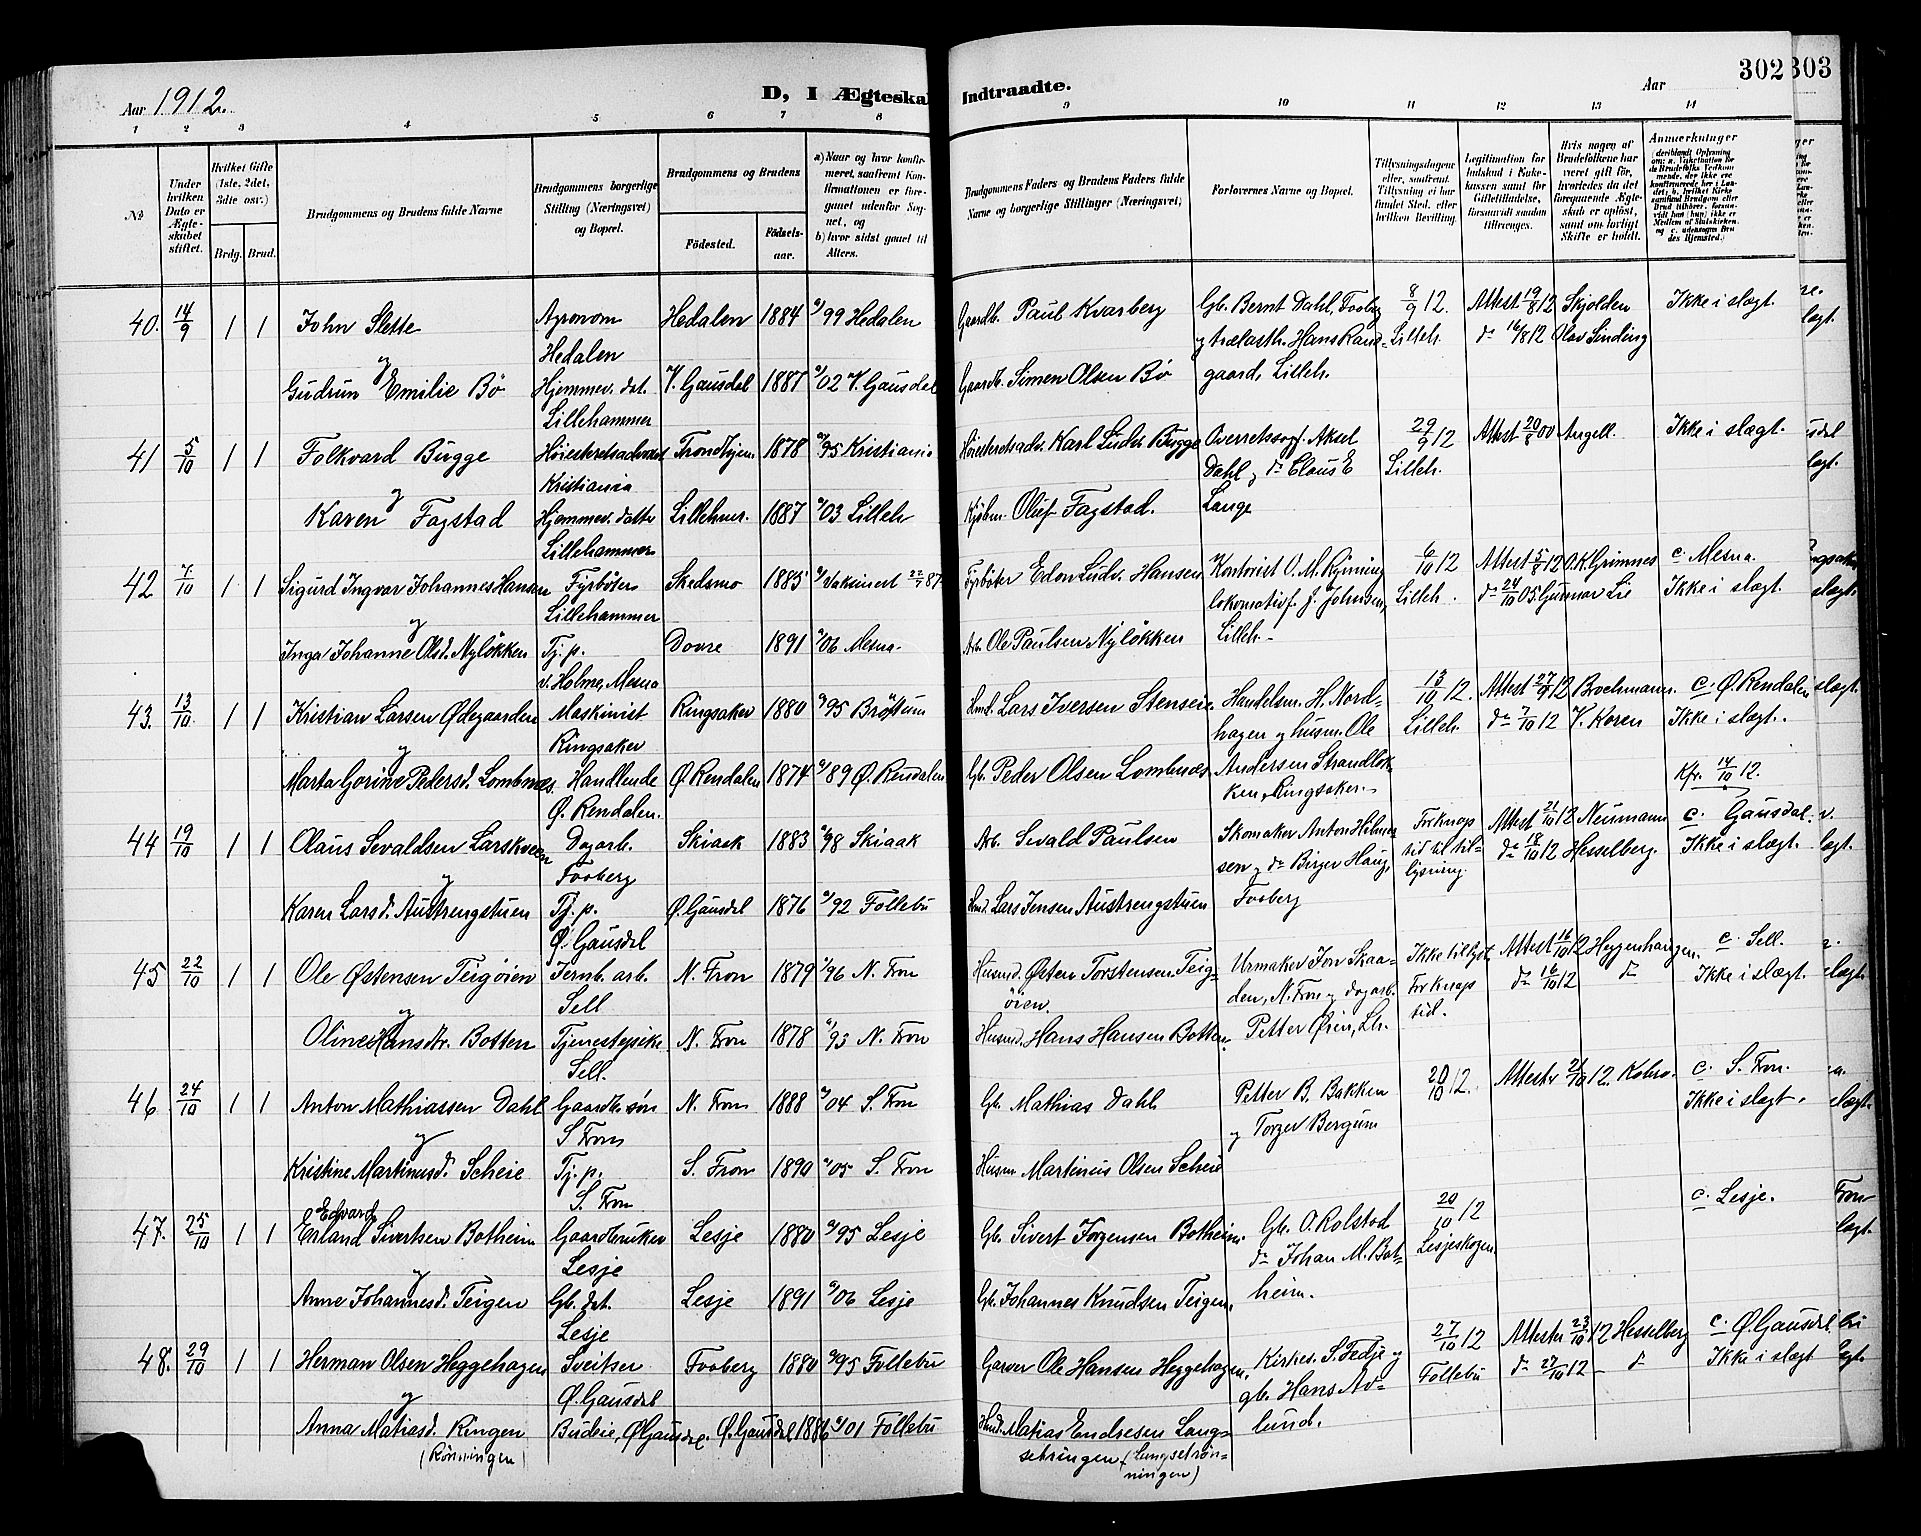 Aar 1912.
D, I Ægteskab Indtraadte.
Aar
302
303
1 2 3 4 5 6 7 8 9 10 11 12 13 14
№
Under hvilken Dato er Ægteskabet stiftet.
Hvilket Gifte (1ste, 2det, 3die osv.)
Brdg. Brud.
Brudgommens og Brudens fulde Navne
Brudgommens borgerlige Stilling (Næringsvei) og Bopæl.
Brudgommens og Brudens
Födested.
Födselsaar.
a) Naar og hvor konfirmeret, saafremt Konfirmationen er foregaaet udenfor Sognet, og
b) hvor sidst gaaet til Alters.
Brudgommens Faders og Brudens Faders fulde Navne og borgerlige Stillinger (Næringsvei)
Forlovernes Navne og Bopæl.
Tillysningsdagene eller, saafremt Tillysning ei har fundet Sted, efter hvilken Bevilling
Hvis nogen af Brudefolkene har været gift för, hvorledes da det foregaaende Ægteskab er oplöst, samt om lovligt Skifte er holdt.
Anmærkninger
40. 14/9 1 1 John Slette Agronom Hedalen 1884 99 Hedalen Gaardb. Paul Kvarberg Gb. Bernt Dahl, Faaberg 8/9 12. Attest 19/8 12 Skjolden Ikke i slægt.
og Hedalen og trælasth. Hans Lilleh. do 16/8 12 Olav Sinding
Gudrun Emilie Bö Hjemmev. dat. V. Gausdal 1887 02 V. Gausdal Gaardb. Simen Olsen Bö gaard, Lilleh.
Lillehammer
41 5/10 1 1 Folkvard Bugge Höiesteretsadvokat Trondhjem 1878 95 Kristiania Höiesteretsadv. Karl Ludv. Bugge Overretssagf. Aksel 29/9 12 Attest 20/8 00 Angell. Ikke i slægt.
og Kristiania Dahl og do Claus E Lilleh.
Karen Fagstad Hjemmev. datter Lillehmr. 1887 03 Lilleh Kjöbm. Oluf Fagstad. Lange
Lillehammer
42 7/10 1 1 Sigurd Ingvar Johannes Hansen Fyrböter Skedsmo 1885 Vaksinert 87 Fyrböter Edon Ludv. Hansen Kontorist O. M. 6/10 12 Attest 5/8 12 O.K. Grimnes c. Mesna.
og Lillehammer lokomativf. J. Johnsen, Lilleh. do 24/10 05. Gunnar Lie Ikke i slægt.
Inga Johanne Olsd. Nylökken Tj. p. Dovre 1891 06 Mesna. Arb. Ole Paulsen Nylökken Lilleh.
v. Holme, Mesna
43. 13/10 1 1 Kristian Larsen Ødegaarden Maskinist Ringsaker 1880 95 Bröttum Lars Iversen Handelsm. H. Nord- 13/10 12. Attest 27/9 12 Brochmann. c. Ø. Rendalen
og Ringsaker hagen og husm. Ole Lilleh. do 7/10 12 V. Koren Ikke i slægt.
Marta Gorine Pedersd. Lombnæs. Handlende Ø. Rendalen 1874 89 Ø. Rendalen Gb. Peder Olsen Lombnæs Andersen Strandlök- Kfr. 14/10 12.
Ø. Rendalen. ken, Ringsaker.
44 19/10 1 1 Olaus Sevaldsen Larskveen Dagarb. Skiaak 1883 98 Skiaak Arb. Sevald Paulsen Skomaker Anton Hilmer- For knap Attest 21/10 12 Neumann c. Gausdal.
og Faaberg sen og do Birger Haug, tid til til- do 18/10 12 Hesselberg. Ikke i slægt.
Karen Larsd. Austrengstuen Tj. p. Ø. Gausdal 1876 92 Follebu Husmd. Lars Jensen Austrengstuen Faaberg lysning.
Ø. Gausdal
45 22/10 1 1 Ole Østensen Teigöien Jernb. arb. N. Fron 1879 96 N. Fron Husmd. Østen Torstensen Teig- Urmaker Jon Skaa- Ikke tillyst. Attest 16/10 12 Heggenhaugen. c Sell.
og Sell öien. den, N. Fron og dagarb. For knap do 16/10 12 do Ikke i slægt.
Oline Hansdtr. Botten Tjenestepike N. Fron 1878 93 N. Fron Husmd. Hans Hansen Botten. Petter Øien, Lh. tid.
Sell.
46 24/10 1 1 Anton Mathiassen Dahl Gaardbr. sön N. Fron 1888 04 S. Fron Gb. Mathias Dahl Petter B. Bakken 20/10 12. Attester 21/10 12. Kobro. c. S. Fron.
og S Fron og Torger Bergum Ikke i slægt.
Kristine Martinusd. Scheie Tj. p. S. Fron 1890 05 S. Fron Husm. Martinus Olsen Scheie
S. Fron
Edvard
47. 25/10 1 1 Erland Sivertsen Botheim Gaardbruker Lesje 1880 95 Lesje Gb. Sivert Jörgensen Botheim. Gb. O. Rolstad 20/10 12 c. Lesje.
og Lesje do Johan M. Bot- Lesjeskogen
Anne Johannesd. Teigen Gb. dat. Lesje 1891 06 Lesje Gb. Johannes Knudsen Teigen. heim.
Lesje
48. 29/10 1 1 Herman Olsen Heggehagen Sveitser Faaberg 1880 95 Follebu Garver Ole Hansen Heggehagen. Kirkes. S. Fedje og 27/10 12 Attester 23/10 12 Hesselberg c. Ø. Gausdal.
og Ø. Gausdal gb. Hans Av- Follebu do 27/10 12 do Ikke i slægt
Anna Matiasd. Ringen Budeie, Ø Gausdal. Ø. Gausdal 1886 01 Follebu Husmd. Matias Endresen Lang- lund.
(Rönningen) setringen (Langsetrön-
ningen)